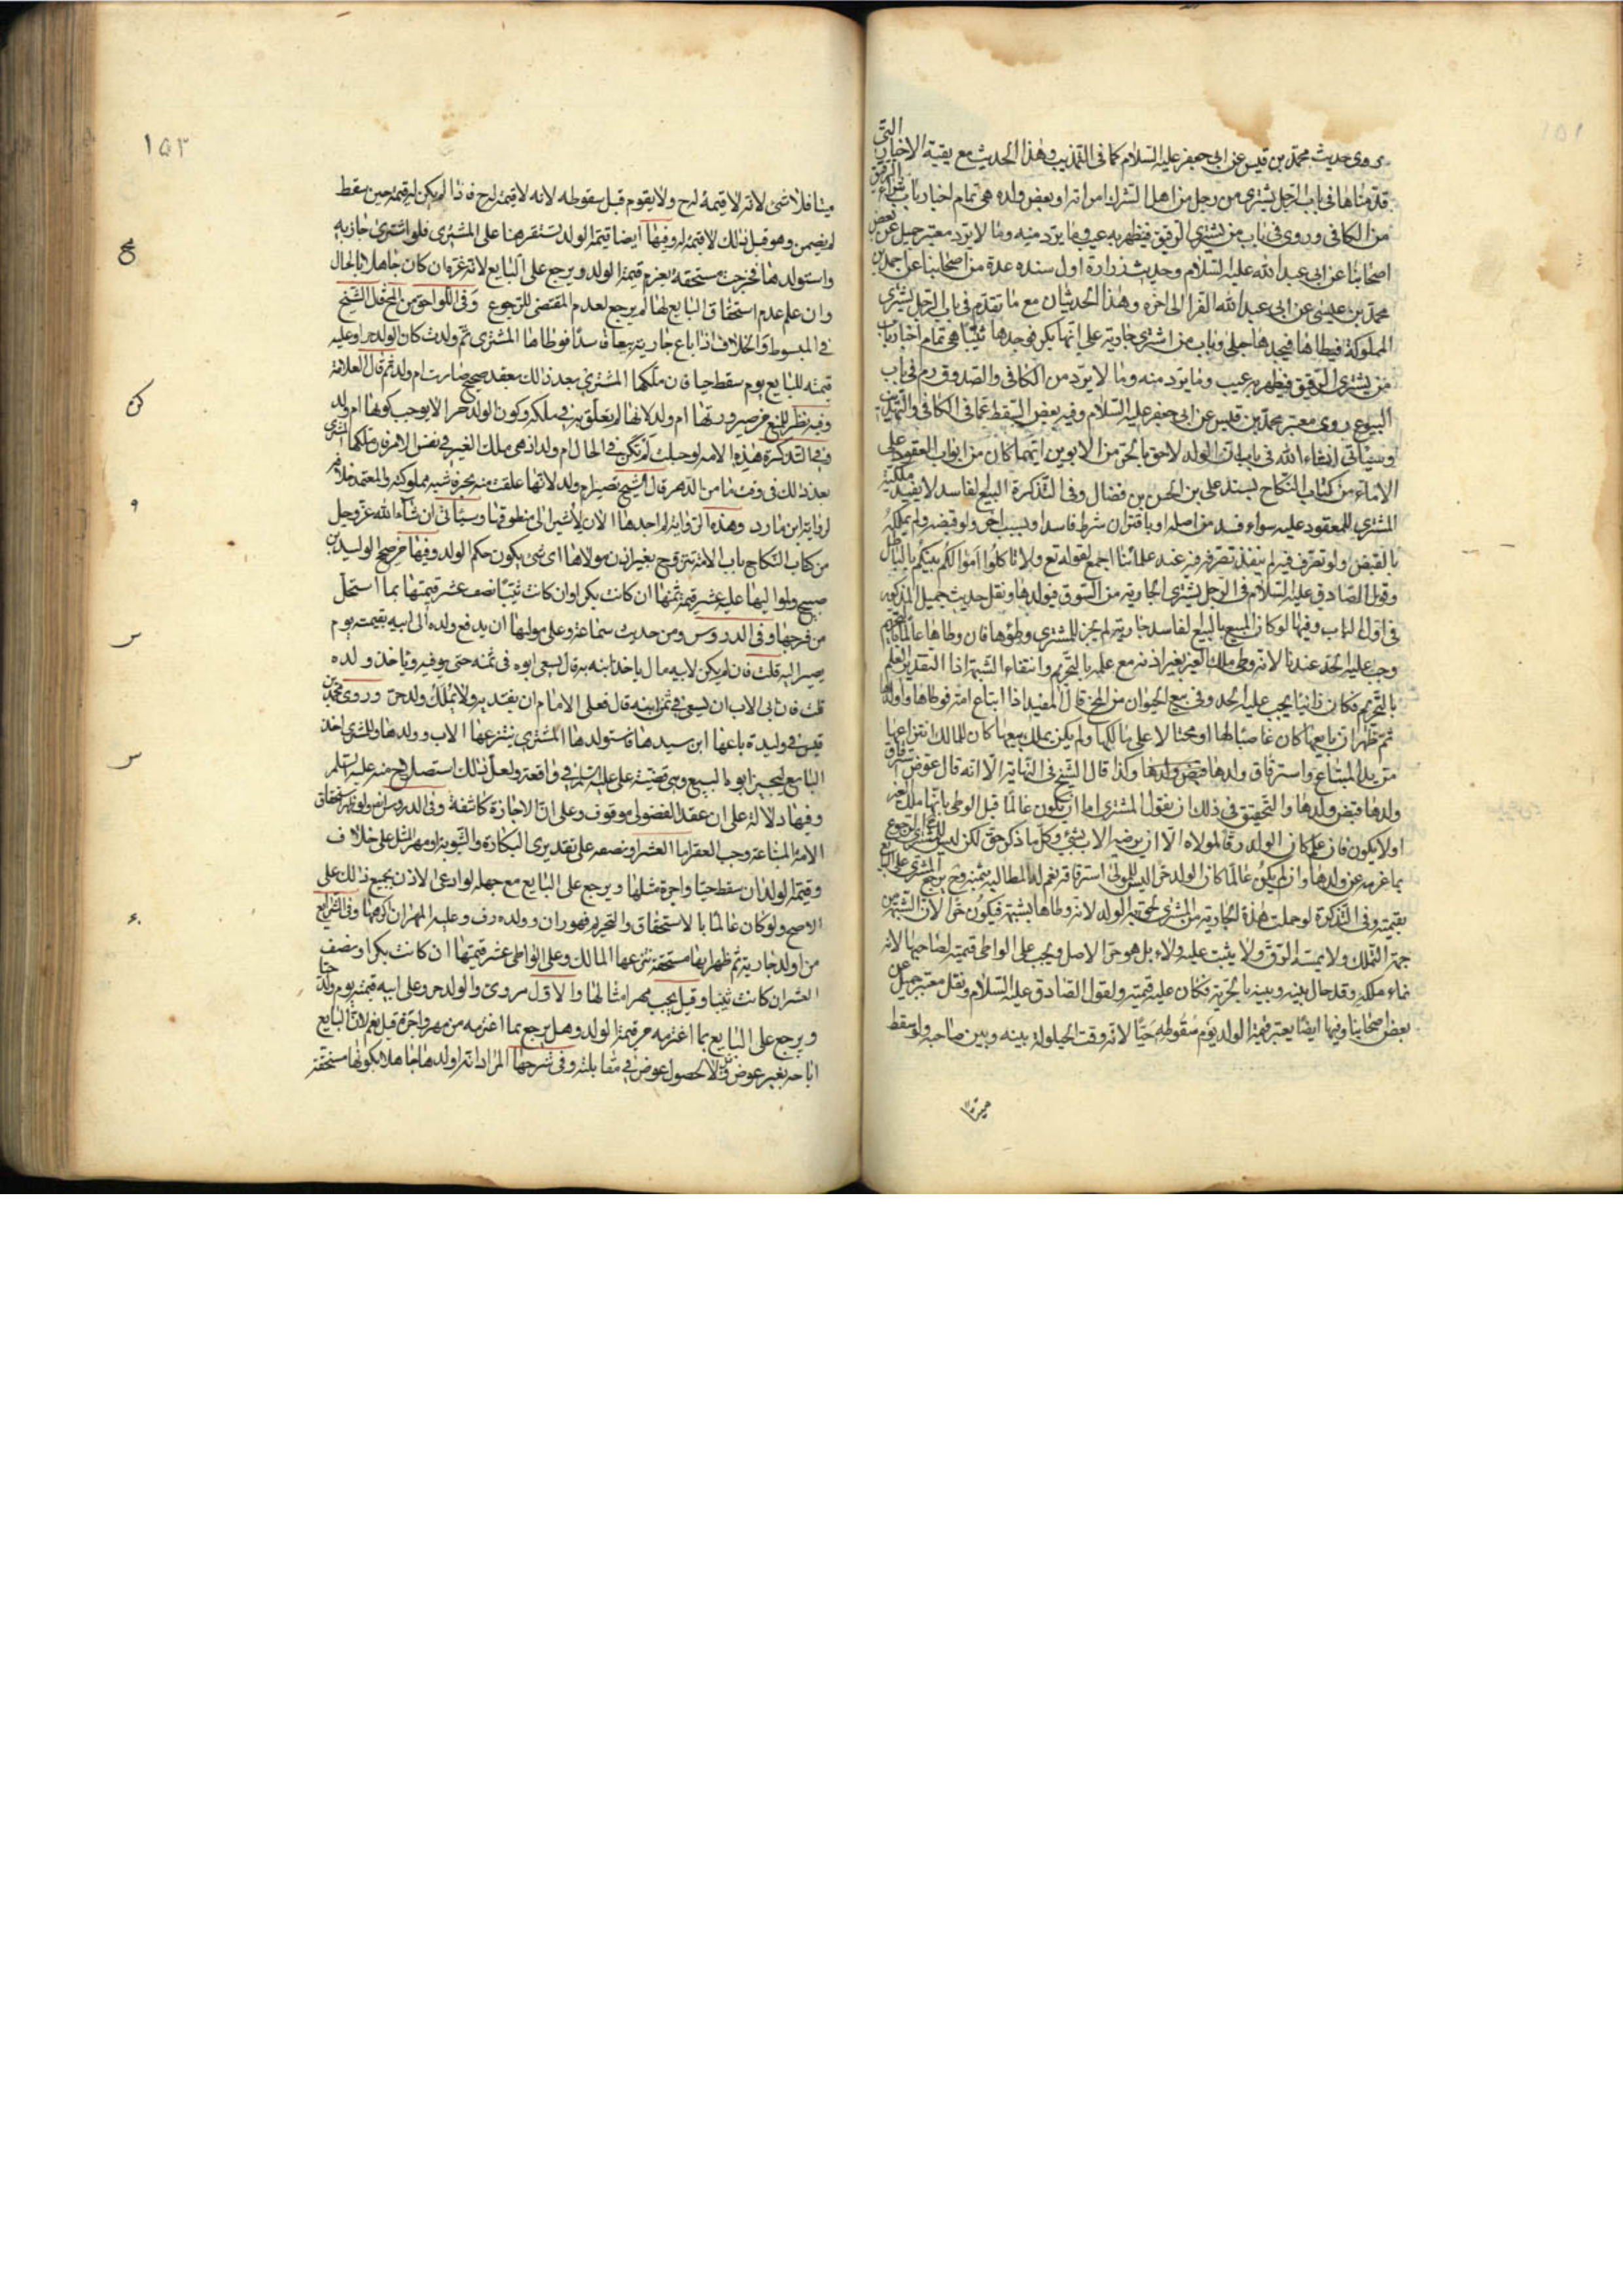 روى حديث محمد بن قيس عن ابى جعفر عليه السلام كما فى التهذيب وهذا الحديث مع بقية الاخبار التى
قدمناها فى باب الرجل يشترى من رجل من اهل الشرك امراته او بعض ولده هى تمام اخبار باب شراء الرقيق
من الكافى وروى فى باب من يشترى الرقيق فيظهر به عيب وما يرد منه وما لا يرد معتبر جميل عن بعض
اصحابنا عن ابى عبد الله عليه السلام وحديث زرارة اول سنده عدة من اصحابنا عن احمد بن
محمد بن عيسى عن ابى عبد الله الفراء الى اخره وهذا الحديثان مع ما تقدم فى باب الرجل يشترى
المملوكة فيطاها فيجدها حبلى وباب من اشترى جارية على انها بكر فوجدها ثيبا هى تمام اخبار باب
من يشترى الرقيق فيظهر به عيب وما يرد منه وما لا يرد من الكافى والصدوق ره فى باب
البيوع روى معتبر محمد بن قيس عن ابى جعفر عليه السلام وفيه بعض السقط عما فى الكافى والتهذيب
وسياتى انشاء الله فى باب ان الولد لاحق بالحر من الابوين ايهما كان من ابواب العقود على
الاماء من كتاب النكاح بسند على بن الحسن بن فضال وفى التذكرة البيع الفاسد لا يفيد ملكية
المشترى للمعقود عليه سواء فسد من اصله او باقتران شرط فاسد او بسبب اخر ولو قبضه لم يملكه
بالقبض ولو تصرف فيه لم ينفذ تصرفه فيه عند علمائنا اجمع لقوله تع ولا تاكلوا اموالكم بينكم بالباطل
وقول الصادق عليه السلام فى الرجل يشترى الجارية من السوق فيولدها ونقل حديث جميل المذكور
فى اول الباب وفيها لو كان المبيع بالبيع الفاسد جارية لم يجز للمشترى وطؤها فان وطاها عالما بالتحريم
وجب عليه الحد عندنا لانه وطى ملك الغير بغير اذنه مع علمه بالتحريم وانتفاء الشبهة اذ التقدير العلم
بالتحريم فكان زانيا يجب عليه الحد وفى بيع الحيوان من المخ قال المفيد اذا ابتاع امة فوطاها واولدها
ثم ظهر ان بايعها كان غاصبا لها او محتالا على مالكها ولم يكن يملك بيعها كان للمالك انتزاعها
من يد المبتاع واسترقاق ولدها وكذا قال الشيخ فى النهاية الا انه قال عوض استرقاق
ولدها قبض ولدها والتحقيق فى ذلك ان نقول المشترى اما ان يكون عالما قبل الوطى بانها ملك الغير
او لا يكون فان علم كان الولد رقا لمولاه الا ان يرضيه الاب بشئ وكل ما ذكر حق لكن ليس للمشترى الرجوع
بما غرمه عن ولدها وان لم يكن عالما كان الولد حرا ليس للمولى استرقاقه نعم له المطالبة بثمنه وح يرجع المشترى على البايع
بقيمته وفى التذكرة لو حملت هذه الجارية من المشترى لحق به الولد لانه وطاها بشبهة فيكون حرا لان الشبهة من
جهة الملك ولا يمسه الرق ولا يثبت عليه ولاء بل هو حر الاصل ويجب على الواطى قيمته لصاحبها لانه
نماء ملكه وقد حال بينه وبينه بالحرية فكان عليه قيمته ولقول الصادق عليه السلام ونقل معتبر جميل عن
بعض اصحابنا وفيها ايضا يعتبر قيمة الولد يوم سقوطه حيا لانه وقت الحيلولة بينه وبين صاحبه ولو سقط
ميتا
١٥٣
ميتا فلا شى لانه لا قيمة له ح ولا يقوم قبل سقوطه لانه لا قيمة له ح فاذا لم يكن له قيمة حين سقط
لم يضمن وهو قبل ذلك لا قيمة له وفيها ايضا قيمة الولد تستقر هنا على المشترى فلو اشترى جارية
واستولدها فخرجت مستحقة يغرم قيمة الولد ويرجع على البايع لانه غره ان كان جاهلا بالحال
وان علم عدم استحقاق البايع لها لم يرجع لعدم المقتضى للرجوع وفى اللواحق من المخ قال الشيخ
فى المبسوط والخلاف اذا باع جارية بيعا فاسدا فوطاها المشترى ثم ولدت كان الولد حرا وعليه
قيمته للبايع يوم سقط حيا فان ملكها المشترى بعد ذلك بعقد صحيح صارت ام ولد ثم قال العلامة
وفيه نظر للمنع من صيرورتها ام ولد لانها لم تعلق به فى ملكه وكون الولد حرا لا يوجب كونها ام ولد
وفى التذكرة هذه الامة لو حبلت لم تكن فى الحال ام ولد اذ هى ملك الغير فى نفس الامر فان ملكها المشترى
بعد ذلك فى وقت ما من الدهر قال الشيخ تصير ام ولد لانها علقت منه بحر فاشبه مملوكته والمعتمد خلافه
لرواية ابن مارد وهذه الرواية لم اجدها الان لاشير الى منطوقها وسياتى ان شاء الله عز وجل
من كتاب النكاح باب الامة تتزوج بغير اذن مولاها اى شى يكون حكم الولد وفيها من صحيح الوليد بن
صبيح ولمواليها عليه عشر قيمة ثمنها ان كانت بكرا وان كانت ثيبا نصف عشر قيمتها بما استحل
من فرجها وفى الدروس ومن حديث سماعة وعلى مولاها ان يدفع ولده الى ابيه بقيمته يوم
يصير اليه قلت فان لم يكن لابيه مال ياخذ ابنه به قال يسعى ابوه فى ثمنه حتى يوفيه وياخذ ولده
قلت فان ابى الاب ان يسعى فى ثمن ابنه قال فعلى الامام ان يفتديه ولا يملك ولد حر وروى محمد بن
قيس فى وليدة باعها ابن سيدها فاستولدها المشترى ينتزعها الاب وولدها وللمشترى اخذ
البايع ليجيز ابوه البيع وهى قضية على عليه السلم فى واقعة ولعل ذلك استصلاح منه عليه السلم
وفيها دلالة على ان عقد الفضولى موقوف وعلى ان الاجازة كاشفة وفى الدروس ايضا ولو ظهر استحقاق
الامة المبتاعة وجب العقر اما العشر او نصفه على تقديرى البكارة والثيوبة او مهر المثل على خلاف
وقيمة الولد ان سقط حيا واجرة مثلها ويرجع على البايع مع جهله او ادعى الاذن بجميع ذلك على
الاصح ولو كان عالما بالاستحقاق والتحريم فهو زان وولده رق وعليه المهر ان اكرهها وفى الشرايع
من اولد جارية ثم ظهر انها مستحقة انتزعها المالك وعلى الواطى عشر قيمتها ان كانت بكرا ونصف
العشر ان كانت ثيبا وقيل يجب مهر امثالها والاول مروى والولد حر وعلى ابيه قيمته يوم ولد حيا
ويرجع على البايع بما اغترمه من قيمة الولد وهل يرجع بما اغترمه من مهر واجرة قيل نعم لان البايع
اباحه بغير عوض وقيل لا لحصول عوض فى مقابلته وفى شرحها المراد انه اولدها جاهلا بكونها مستحقة